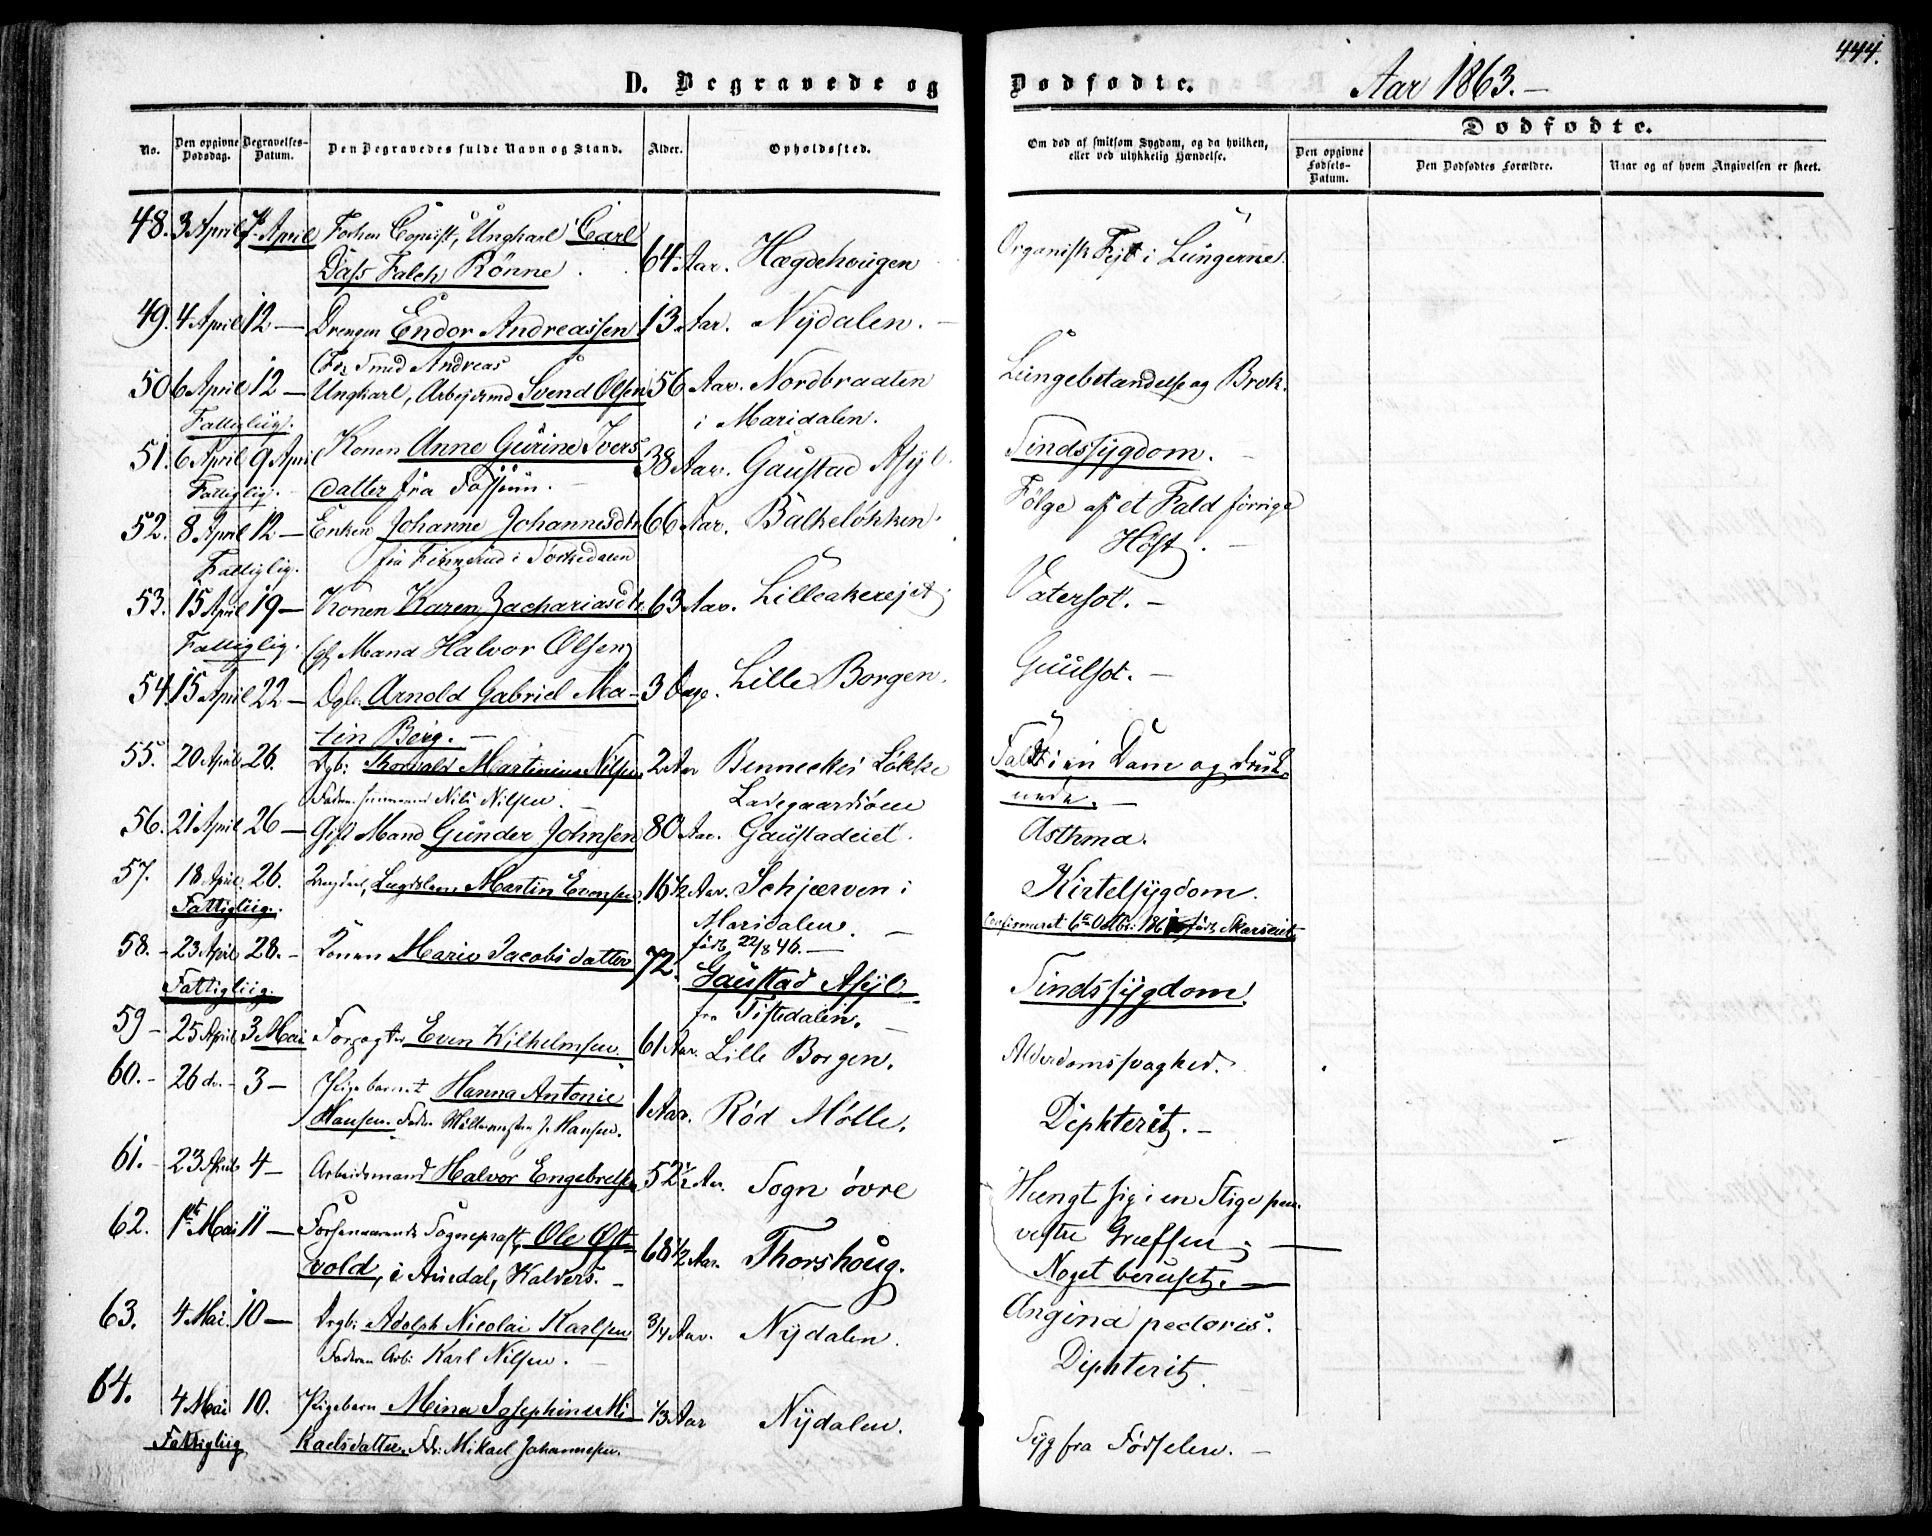 444.
D. Begravede og Dødfødte. Aar 1863.—
No. Den opgivne Dødsdag. Begravelses-Datum. Den Begravedes fulde Navn og Stand. Alder. Opholdssted.
Om død af smitsom Sygdom, og da hvilken, eller ved ulykkelig Hændelse.
Dødfødte.
Den opgivne Fødsels-Datum. Den Dødfødtes Forældre. Naar og af hvem Angivelsen er skeet.
48. 3 April 7 April Forhen Copiist, Ungkarl Carl
Dass Falch Rønne. 64 Aar. Hægdehougen Organisk Fejl i Lungerne.
49. 4 April 12 — Drengen Endor Andreassen 13 Aar. Nydalen. —
Smed Andreas
50. 6 April 12 — Ungkarl, Arbejdsmd Svend Olsen 56 Aar. Nordbraaten Lungebetændelse og Brok.
Fattiglig. i Maridalen.
51. 6 April 9 April Konen Anne Gurine Ivers 38 Aar. Gaustad Asyl. Sindssygdom. —
Fattiglig. — datter fra Fossum. —
52. 8 April 12 — Enken Johanne Johannesdtr 66 Aar. Bakkeløkken. Følge af et Fald forrige
Høst. —
Fattiglig. fra Finnerud i Sørkedalen
53. 15 April 19 — Konen Karen Zachariasdtr 63 Aar. Lilleakerejet. Vatersot. —
Fattiglig. Mand Halvor Olsen
54. 15 April 22 — Dgb. Arnold Gabriel Ma- 3 Dage. Lille Borgen. Guulsot. —
tin Borg. —
55. 20 April 26. Dgb: Thorvald Martinius Nilsen 2 Aar Benneches Løkke Faldt i en Dam og druk-
Faderen Nils Nilsen. — Ladegaardsøen nede. —
56. 21 April 26 — Gift Mand Gunder Johnsen 80 Aar. Gaustadeiet. Asthma.
57. 18 April. 26. Martin Evensen 16½ Aar. Schjærven i Kirtelsygdom.
Fattigliig. Maridalen. — født 22/8 46. — Confirmeret 6te Octbr: 186 født Skarseiet
58. — 23 April 28. — Konen Marie Jacobsdatter 72. Gaustad Asyl. Sindssygdom.
Fattigliig. fra Tistedalen. —
59 — 25 April 3 Mai Even Wilhelmsen 61 Aar. Lille Borgen. Alderdomssvaghed.
60. — 26 do. — 3 — Pigebarnet Hanna Antonie
Hansen. Fader Møllermester J. Hansen. 1 Aar. Rød Mølle. Diphterit. —
61. — 23 April 4 — Arbeidsmand Halvor Engebretsen 52½ Aar. Sogn øvre Hængt sig i en Stige paa
vestre Græfsen. —
Noget beruset. —
62. 1st Mai 11 — Forhenværende Sogneprest, Ole Øst-
vold, i Audal, Halvers. — 68½ Aar. Thorshoug. Angina pectoris.
63. 4 Mai. 10 — Drgb: Adolph Nicolai Karlsen ¾ Aar. Nydalen. Diphterit.
Faderen Arb: Karl Nilsen. —
64. 4 Mai 10. Pigebarn Mina Josephine Mi- ⅓ Aar Nydalen. Syg fra Fødselen. —
Fattigliig kaelsdatter. Fdr: Mikael Johannesen.